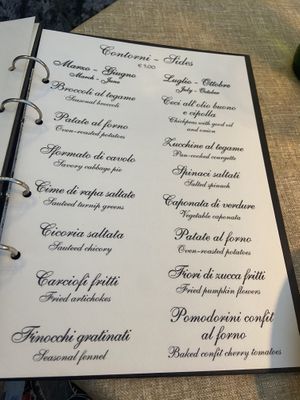 Contorni - Sides
€ 5.00
Marzo - Giugno
March - June
Broccoli al tegame
Seasonal broccoli
Patate al forno
Oven-roasted potatoes
Sformato di cavolo
Savory cabbage pie
Cime di rapa saltate
Sauteed turnip greens
Cicoria saltata
Sauteed chicory
Carciofi fritti
Fried artichokes
Finocchi gratinati
Seasonal fennel
Luglio - Ottobre
July - October
Ceci all'olio buono
e cipolla
Chickpeas with good oil
and onion
Zucchine al tegame
Pan-cooked courgette
Spinaci saltati
Salted spinach
Caponata di verdure
Vegetable caponata
Patate al forno
Oven-roasted potatoes
Fiori di zucca fritti
Fried pumpkin flowers
Pomodorini confit
al forno
Baked confit cherry tomatoes